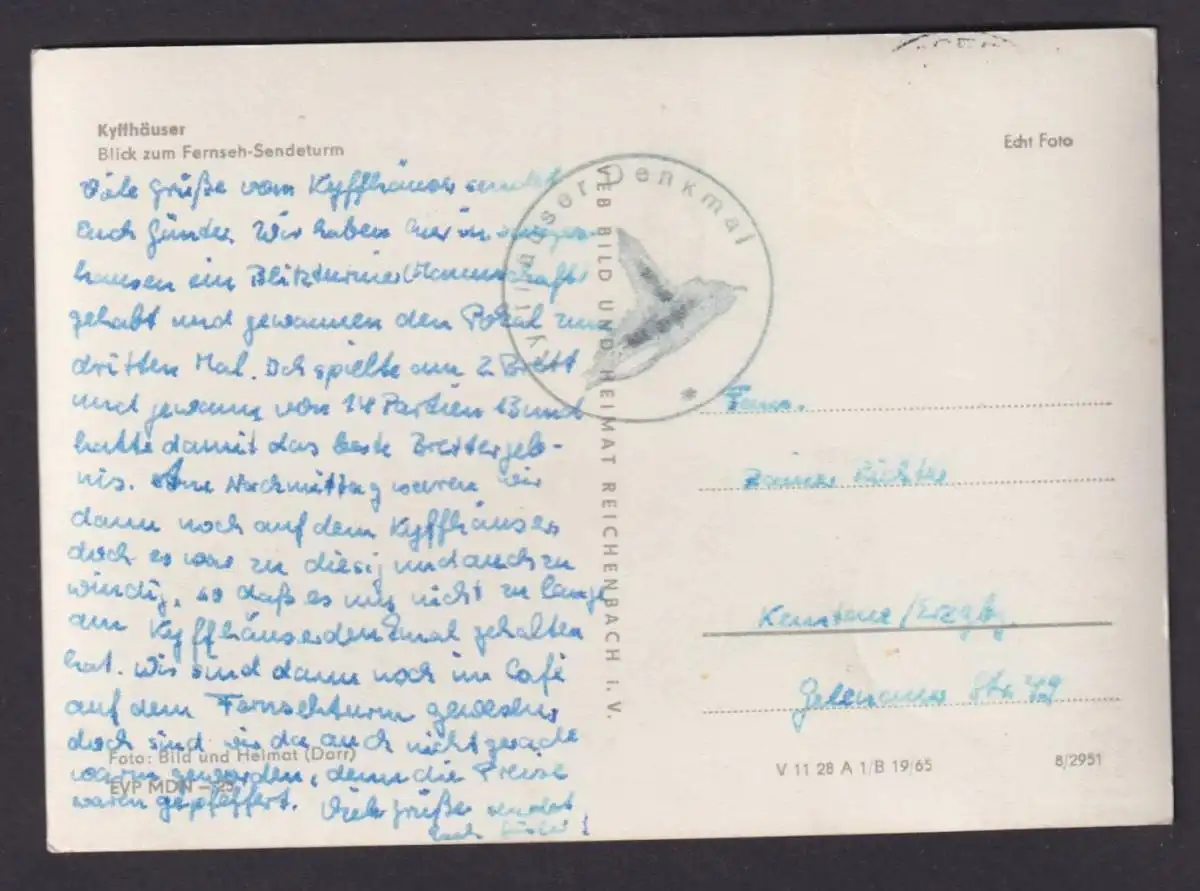 Kyffhäuser
Blick zum Fernseh-Sendeturm
Echt Foto
Viele Grüße vom Kyffhäuser sendet
Euch Günter. Wir haben hier in
hausen ein Blitzturnier (Mannschaft)
gehabt und gewannen den Pokal zum
dritten Mal. Ich spielte am 2. Brett
und gewann von 14 Partien 13 und
hatte damit das beste Brettergeb-
nis. Am Nachmittag waren wir
dann noch auf dem Kyffhäuser
doch es war zu diesig und auch zu
windig, so daß es uns nicht zu lange
am Kyffhäuserdenkmal gehalten
hat. Wir sind dann noch im Café
auf dem Fernsehturm gewesen,
doch sind wir da auch nicht gerade
warm geworden, denn die Preise
waren gepfeffert. Viele Grüße sendet
Euch Günter!
Foto: Bild und Heimat (Darr)
EVP MDN –.25
Kyffhäuser Denkmal *
VEB BILD UND HEIMAT REICHENBACH i. V.
Fam.
Rainer Richter
/Erzgb.
Gelenauer Str. 49
V 11 28 A 1/B 19/65
8/2951